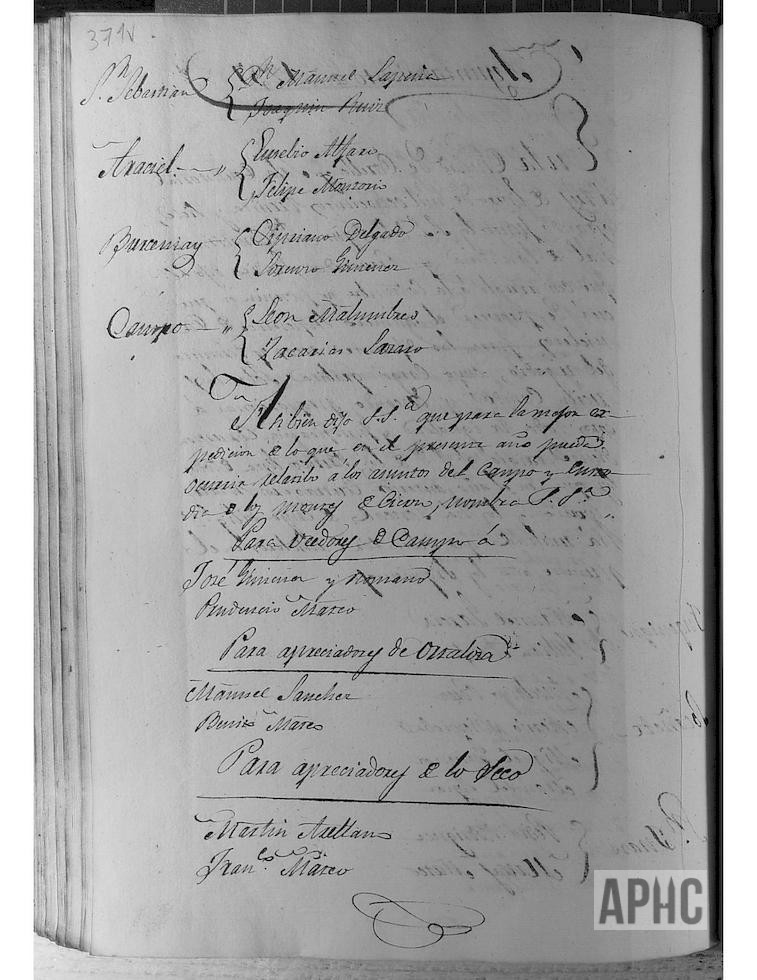 371v
Sn Sebastian { Dn Manuel Lapeña
Joaquin Ruiz
Araciel { Eusebio Alfaro
Felipe Monzon
Burcemay { Cipriano Delgado
Lorenzo Gimenez
Campo { Leon Malumbres
Zacarias Lazaro
Tambien dijo S.Sa. que para la mejor ex-
pedicion de lo que en el presente año pueda
ocurrir relatibo á los asuntos del Campo y
de los montes de Cierzo, nombra S. Sa.
Para veedores de Campo á
José Gimenez y Romano
Prudencio Marco
Para apreciadores de Ortaliza
Manuel Sanchez
Benito Marco
Para apreciadores de lo Seco
Martin Arellano
Franco. Marco
APHC